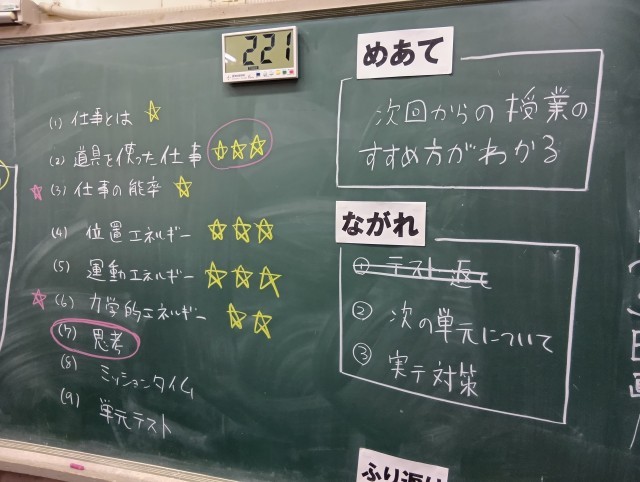 221
(1) 仕事とは ☆
(2) 道具を使った仕事 ☆☆☆
☆ (3) 仕事の能率 ☆
(4) 位置エネルギー ☆☆☆
(5) 運動エネルギー ☆☆☆
☆ (6) 力学的エネルギー ☆☆
(7) 思考
(8) ミッションタイム
(9) 単元テスト
めあて
次回からの授業の
すすめ方がわかる
ながれ
① テスト返し
② 次の単元について
③ 実テ対策
ふり返り